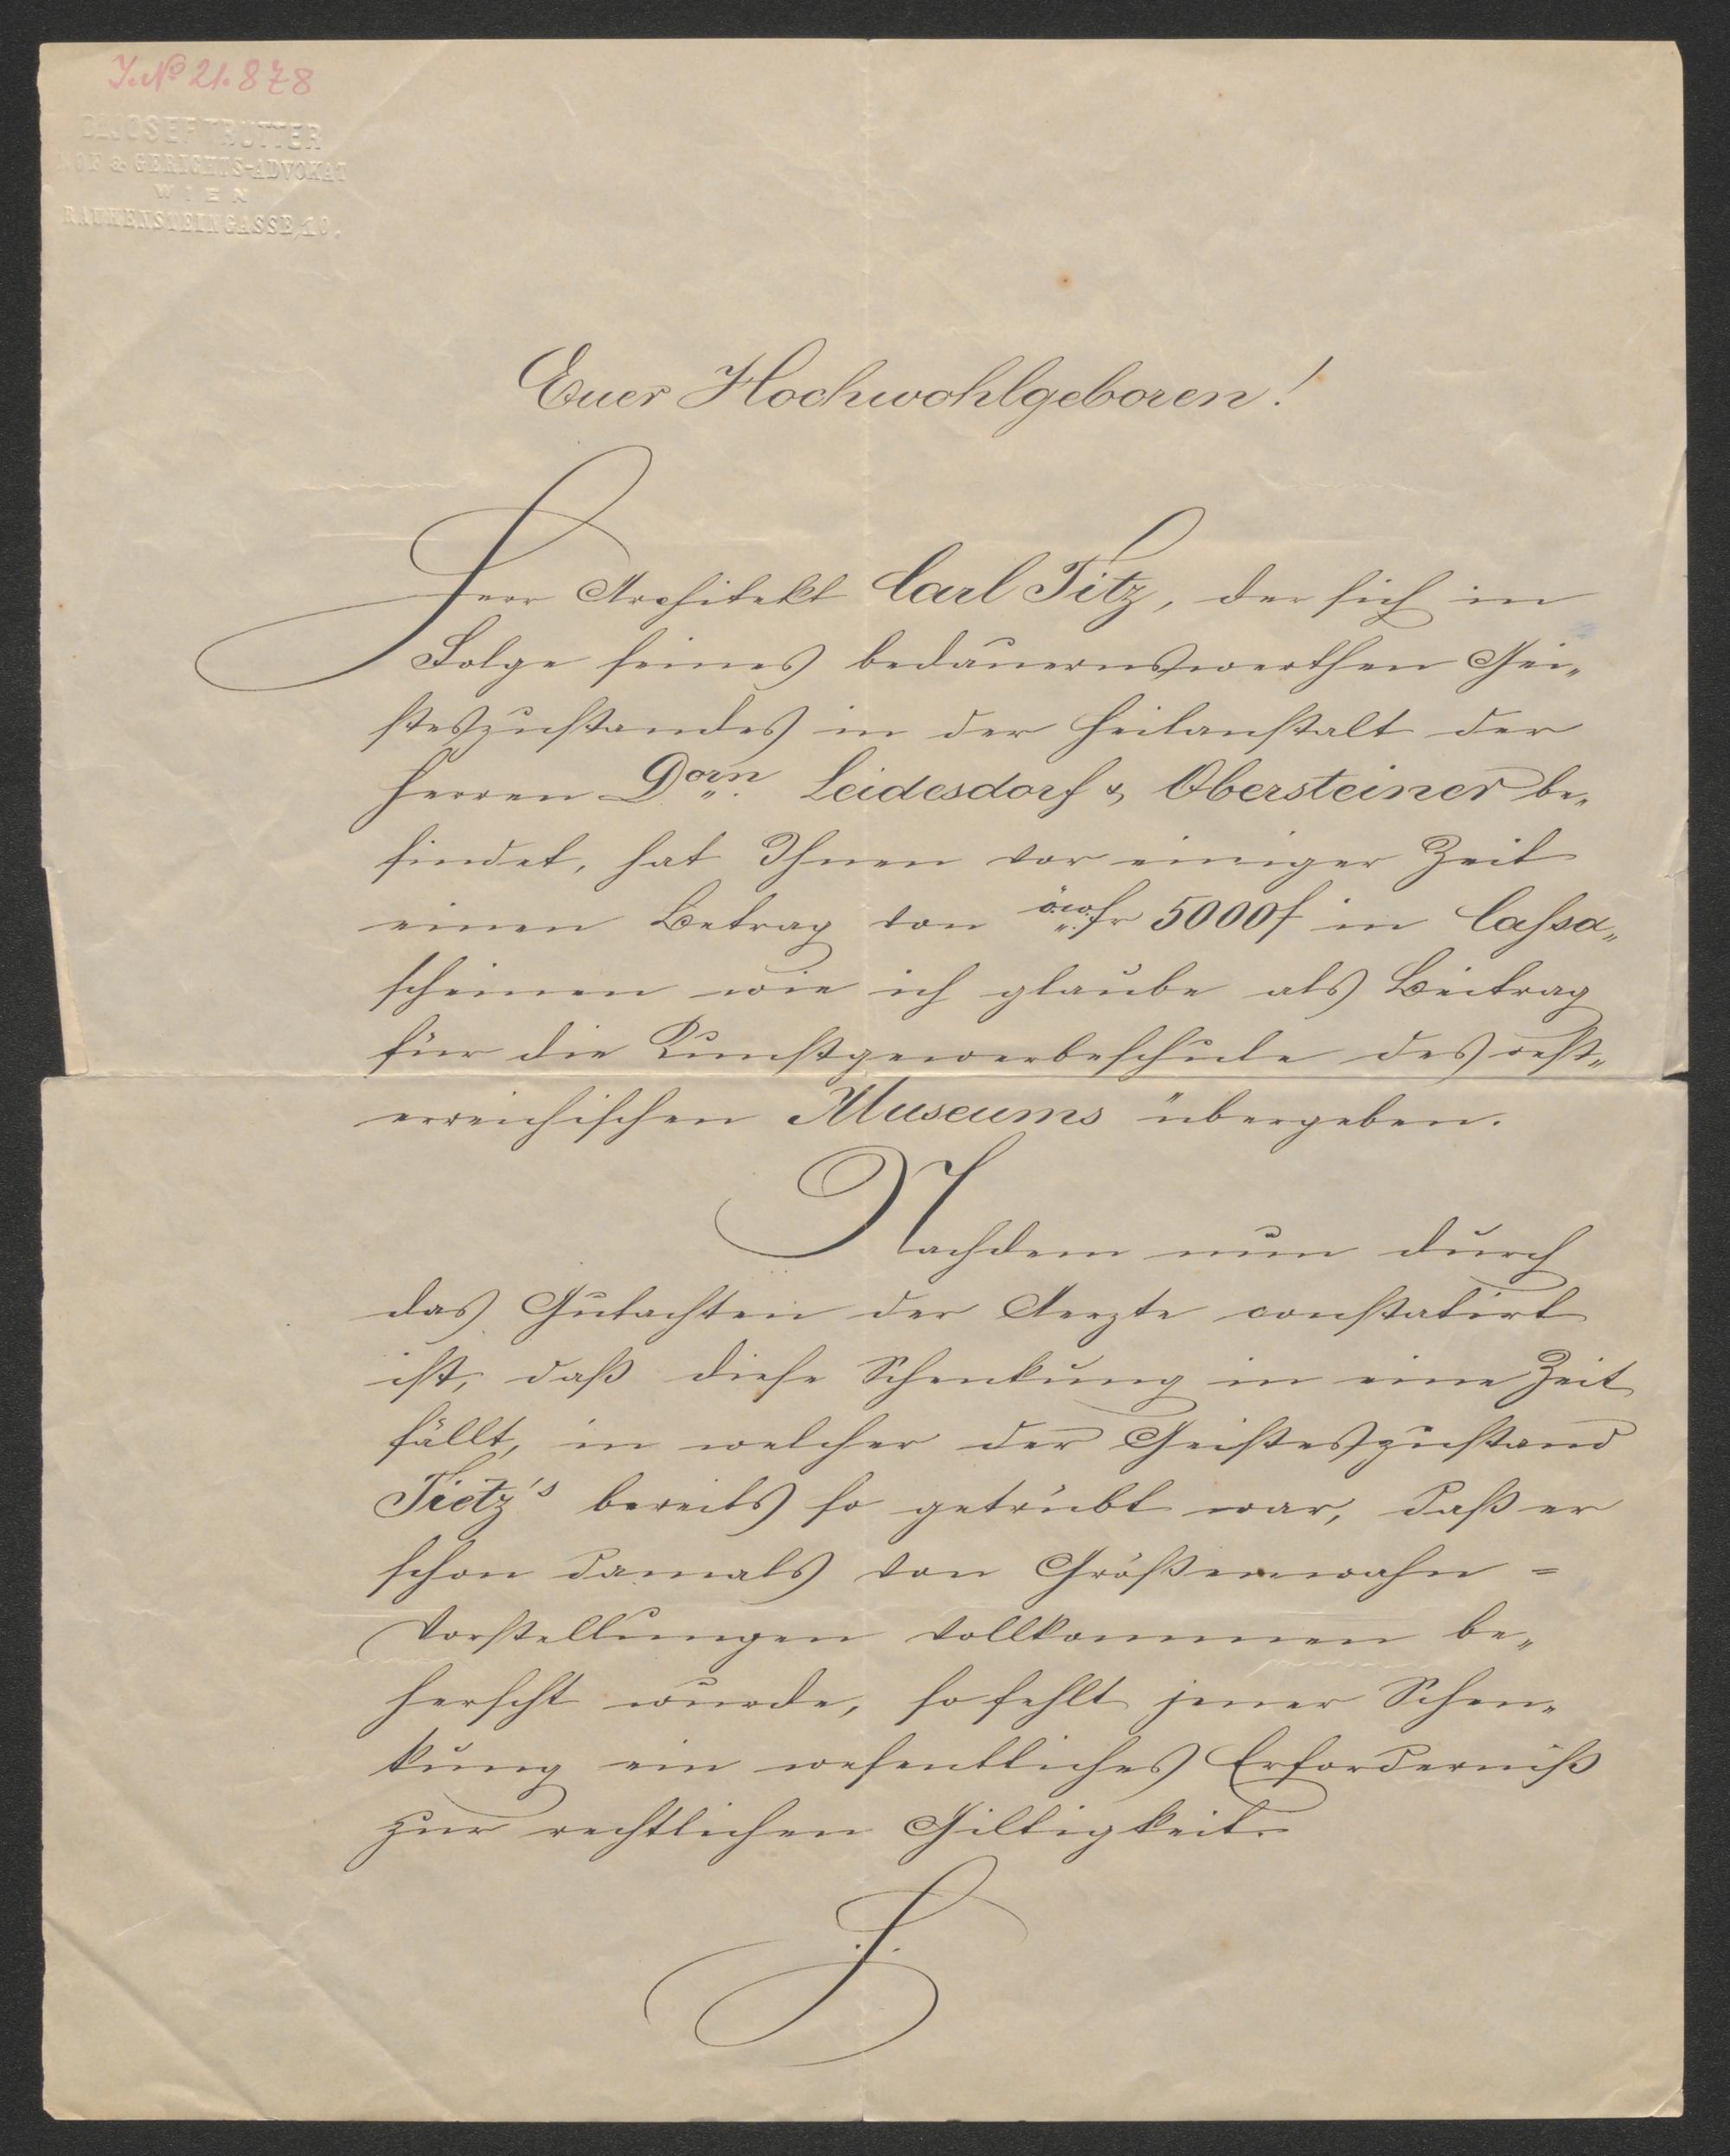 J.№ 21.878
DR JOSEF TRUTTER
HOF & GERICHTS-ADVOKAT
WIEN
RAUHENSTEINGASSE 10.
Euer Hochwohlgeboren!
Herr Architekt Carl Titz, der sich in
Folge seines bedauernswerthen Gei„
steszustandes in der Heilanstalt der
Herren Dorn. Leidesdorf & Obersteiner be„
findet, hat Ihnen vor einiger Zeit
einen Betrag von ö.w. fr 5000f in Cassa„
scheinen wie ich glaube als Beitrag
für die Kunstgewerbeschule des oest„
erreichischen Museums übergeben.
Nachdem nun durch
das Gutachten der Aerzte constatirt
ist, daß diese Schenkung in eine Zeit
fällt, in welcher der Geisteszustand
Tietz's bereits so getrübt war, daß er
schon damals von Größenwahn =
Vorstellungen vollkommen be„
herscht wurde, so fehlt jener Schen„
kung ein wesentliches Erforderniß
zur rechtlichen Giltigkeit.